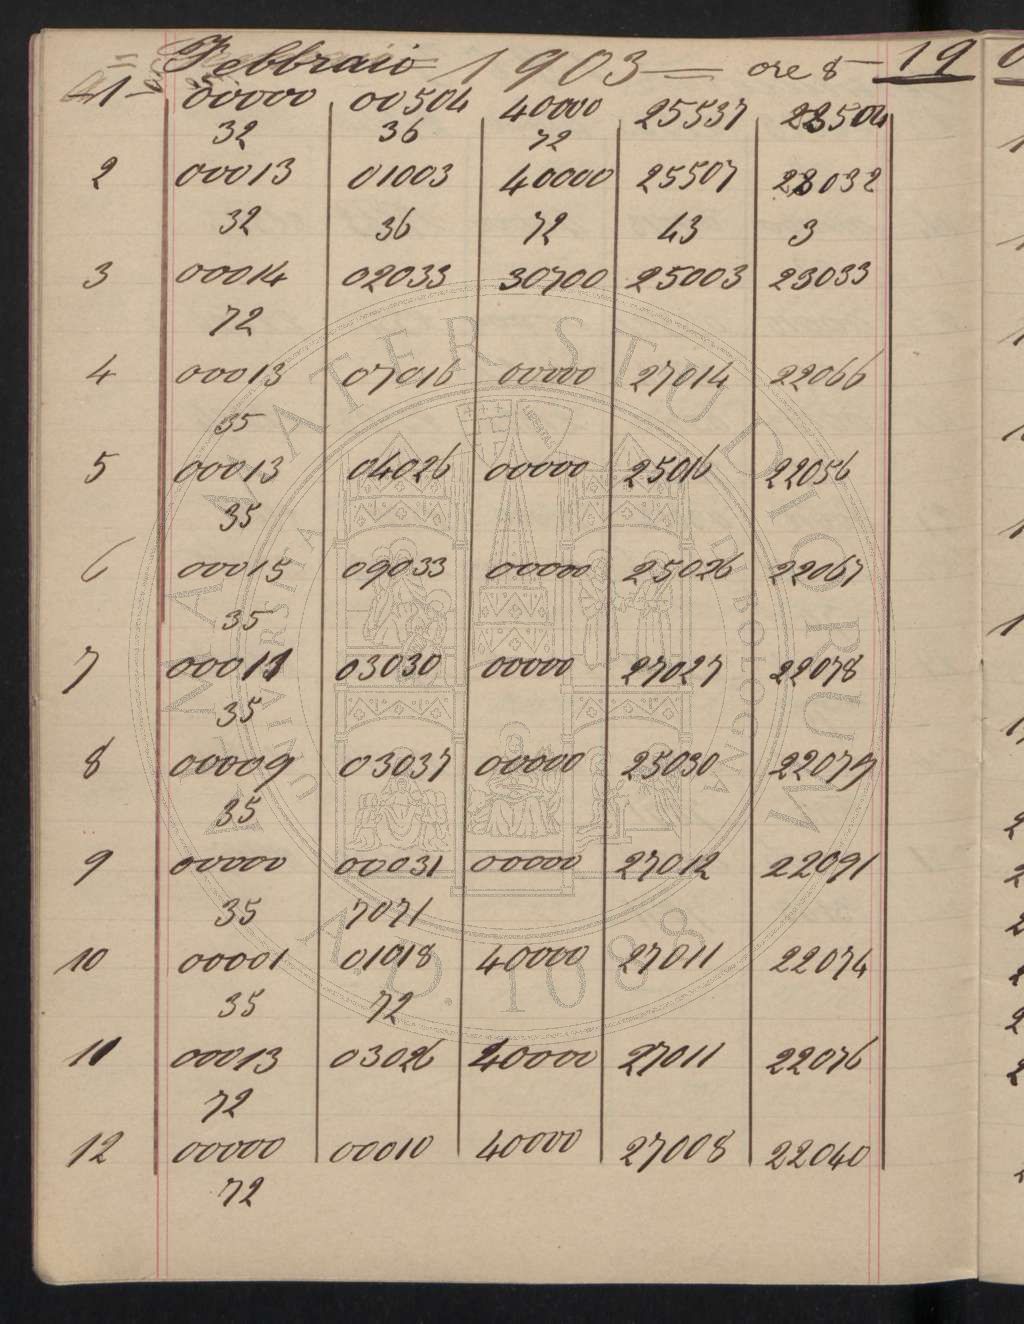 Febbraio 1903 ore 8 19
1 00000 00504 40000 25537 23504
32 36 72
2 00013 01003 40000 25507 23032
32 36 72 43 3
3 00014 02033 30700 25003 23033
72
4 00013 07016 00000 27014 22066
35
5 00013 04026 00000 25016 22056
35
6 00015 09033 00000 25026 22067
35
7 00011 03030 00000 27027 22078
35
8 00009 03037 00000 25030 22079
35
9 00000 00031 00000 27012 22091
35 7071
10 00001 01018 40000 27011 22074
35 72
11 00013 03026 40000 27011 22076
72
12 00000 00010 40000 27008 22040
72
ALMA MATER STUDIORUM
UNIVERSITÀ DI BOLOGNA
LIBERTAS
A.D. 1088